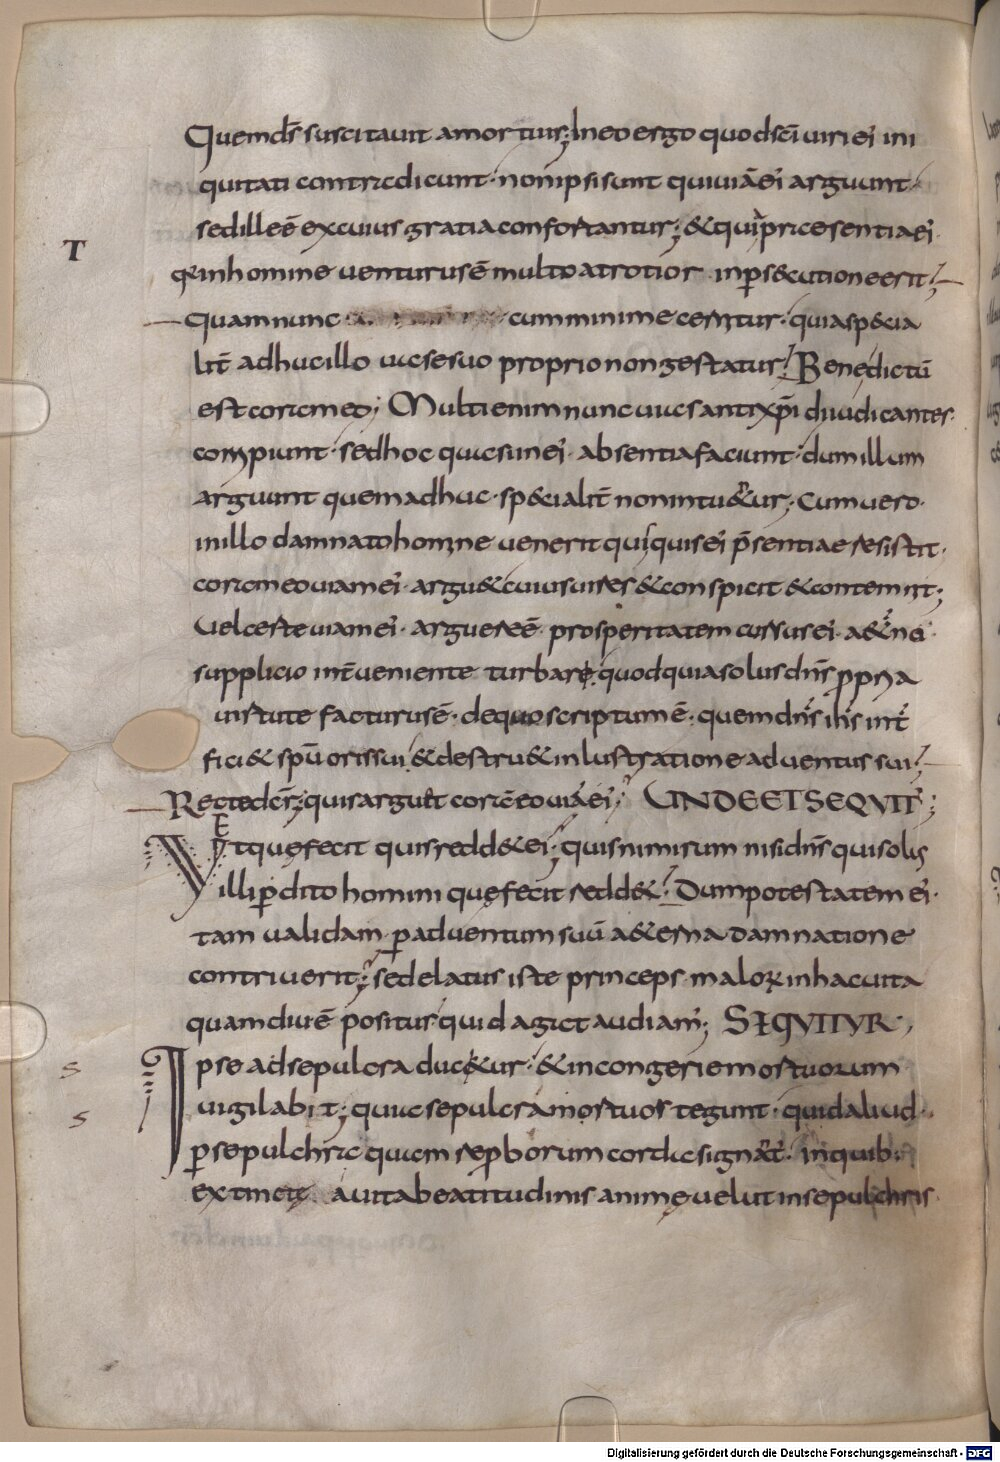 Quemdñs suscitavit a mortuis; In eo ergo quod sci̅ viri ei' ini
quitati contradicunt· non ipsi sunt qui viã ei' arguunt·
sed ille ẽ ex cuius gratia confortantur; & qui a p̃resentia ei'
q in homine venturus ẽ multo atrotior in p̱s&cutione erit;
quam nunc cum minime cernitur· quia sp&ia
lit̃ adhuc illo vase suo proprio non gestatur; Benedictũ
est coram eo; Multi enim nunc vias antixp̃i diiudicantes·
corripiunt· sed hoc quasi in ei' absentia faciunt· dum illum
arguunt quem adhuc· sp&ialit̃ non intu&ur; Cum vero·
in illo damnato homine venerit quisquis ei' p̃sentiae resistit·
coram eo viam ei' argu& cuius vires & conspicit & contemnit;
Vel certe viam ei'· arguere ẽ· prosperitatem cursus ei'· a&̃no
supplicio int̃veniente turbare; quod quia solus dñs ꝓpria
virtute facturus ẽ· de quo scriptum ẽ· quem dñs ihs int̃
fici& spũ oris sui· & destru& inlustratione adventus sui;
Recte dc̃r; quis argu&t corã eo viã ei'; UNDE ET SEQVIT̃;
ET quę fecit quis redd& ei; quis nimirum nisi dñs qui solus
illi p̱dito homini quę fecit redd&; Dum potestatem ei'·
tam validam p̱ adventum suũ a&erna damnatione
contriverit; sed elatus iste princeps malorꝝ in hac vita
quamdiu ẽ positus· quid agat audiam'; SEQVITVR,
Ipse ad sepulcra duc&ur· & in congerie mortuorum
vigilabit; quia sepulcra mortuos tegunt· quid aliud·
p̱ sepulchra quam reproborum corda signãt· in quib·
extincta a vita beatitudinis animę velut in sepulchris
T
s
s
Digitalisierung gefördert durch die Deutsche Forschungsgemeinschaft - DFG